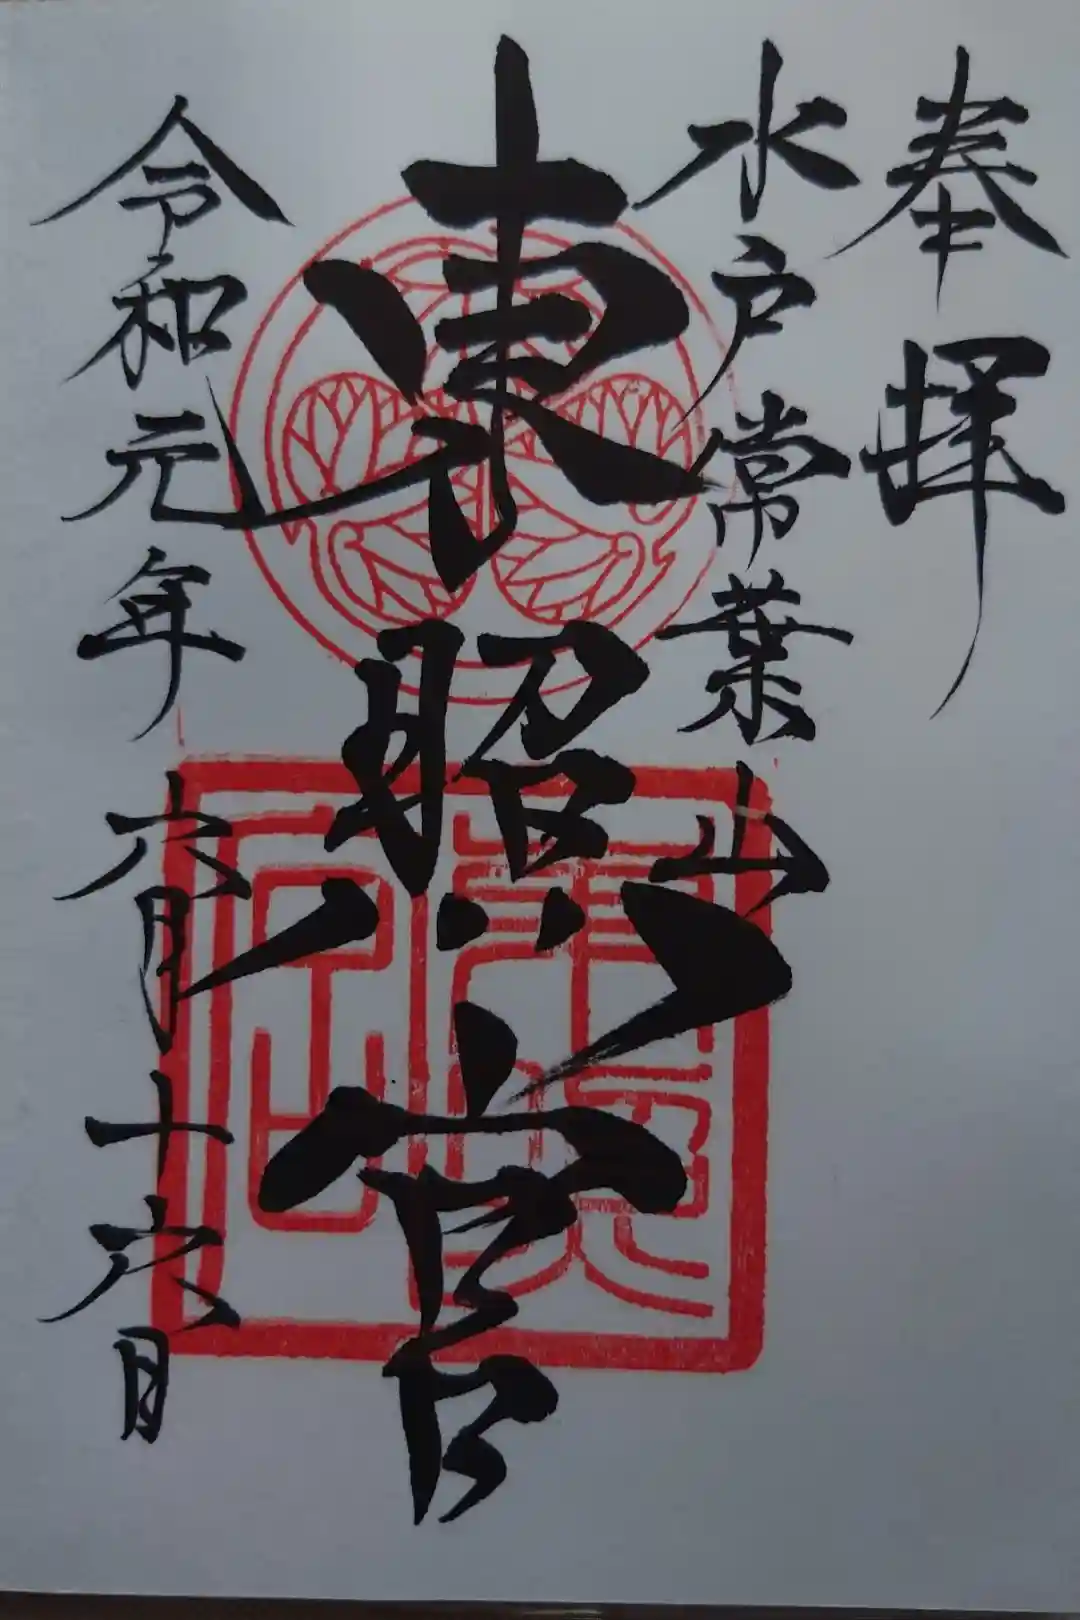 奉拝
水戸常葉山
東照宮
令和元年六月十六日